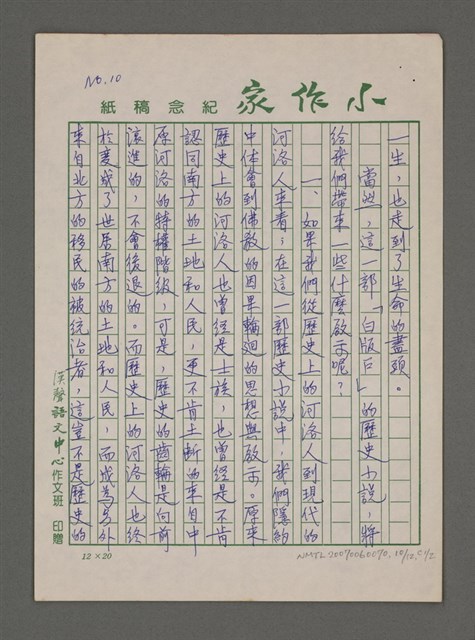 No.10
小作家 紀念稿紙
一生，也走到了生命的盡頭。
當然，這一部「白版戶」的歷史小說，將
給我們帶來一些什麼啟示呢？
一、如果我們從歷史上的河洛人到現代的
河洛人來看，在這一部歷史小說中，我們隱約
中体會到佛教的因果輪迴的思想與啟示。原來
歷史上的河洛人也曾經是士族，也曾經是不肯
認同南方的土地和人民，更不肯土斷的來自中
原河洛的特權階級，可是，歷史的齒輪是向前
滾進的，不會後退的。而歷史上的河洛人也終
於變成了世居南方的土地和人民，而成為另外
來自北方的移民的被統治者，這豈不是歷史的
漢聲語文中心作文班 印贈
12×20
NMTL20070060070